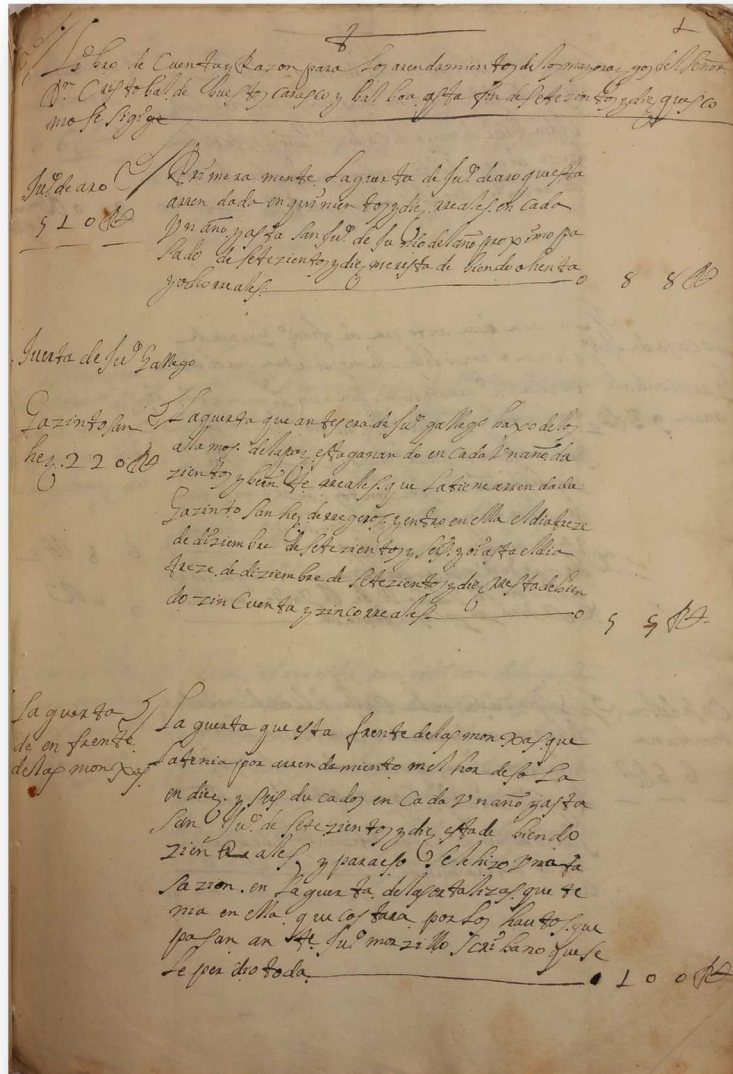 Libro de Cuenta y Razon para los arrendamientos de los mayorazgos del Señor
Dn Cristobal de Bustos Carasco y balboa asta fin de setezientos y diez que es co
mo se sige
Juº de aro
510 Rs
Primera mente la guerta de Juº de aro que esta
arren dada en quinientos y diez reales en cada
Un año y asta san Juº de Junio del año proximo pa
sado de setezientos y diez me resta debiendo ochenta
y ocho rreales 0 8 8 Rs
Juerta de Juº Gallego
Gazinto san
hez 220 Rs
La guerta que antes era de Juº gallego baxo de los
alamos de la esta ganando en cada Un año da
zientos y beinte rreales que la tiene arren dada
Gazinto sanhez y entro en ella el dia treze
de diziembre de setezientos y seis y asta el dia
treze de diziembre de setezientos y diez resta debien
do zin Cuenta y zinco rreales 0 5 5 Rs
La guerta
de en frente
de las monxas
La guerta que esta frente de las monxas que
la tenia por arrendamiento melhor de sola
en diez y seis ducados en Cada Un año y asta
san Juº de setezientos y diez esta debiendo
zien Reales y para eso se le hizo Una ta
sazion en la guerta de las ortalizas que te
nia en ella que costara por los hautos que
pasan an te Juº morzillo scribano que se
le perdio toda 100 Rs